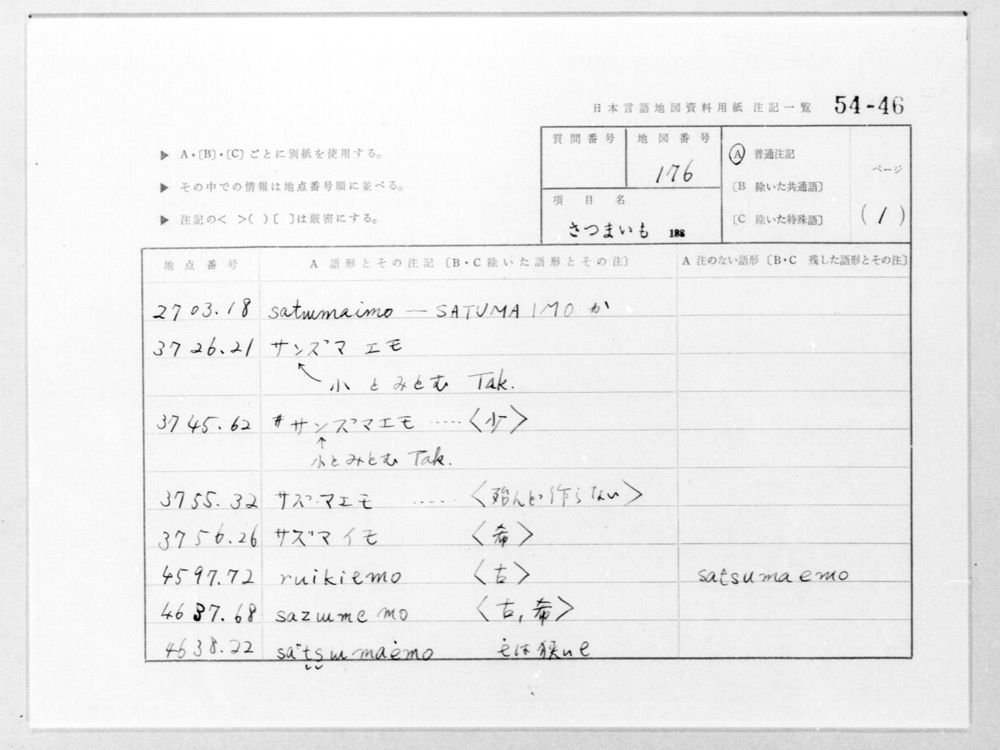 日本言語地図資料用紙 注記一覧 54-46
▶ A・〔B〕・〔C〕ごとに別紙を使用する。
▶ その中での情報は地点番号順に並べる。
▶ 注記の< >( )[ ]は厳密にする。
質問番号
地図番号
176
項目名
さつまいも 188
A 普通注記
〔B 除いた共通語〕
〔C 除いた特殊語〕
ページ
(1)
地点番号 A 語形とその注記〔B・C 除いた語形とその注〕 A 注のない語形〔B・C 残した語形とその注〕
2703.18 satɯmaimo — SATUMAIMO か
3726.21 サンズマエモ
小とみとむ Tak.
3745.62 #サンズマエモ ……〈少〉
小とみとむ Tak.
3755.32 サズマエモ ……〈殆んど作らない〉
3756.26 サズマイモ 〈希〉
4597.72 ruikiemo 〈古〉 satsumaemo
4637.68 sazɯmemo 〈古,希〉
4638.22 satsɯmaėmo ėは狭いe